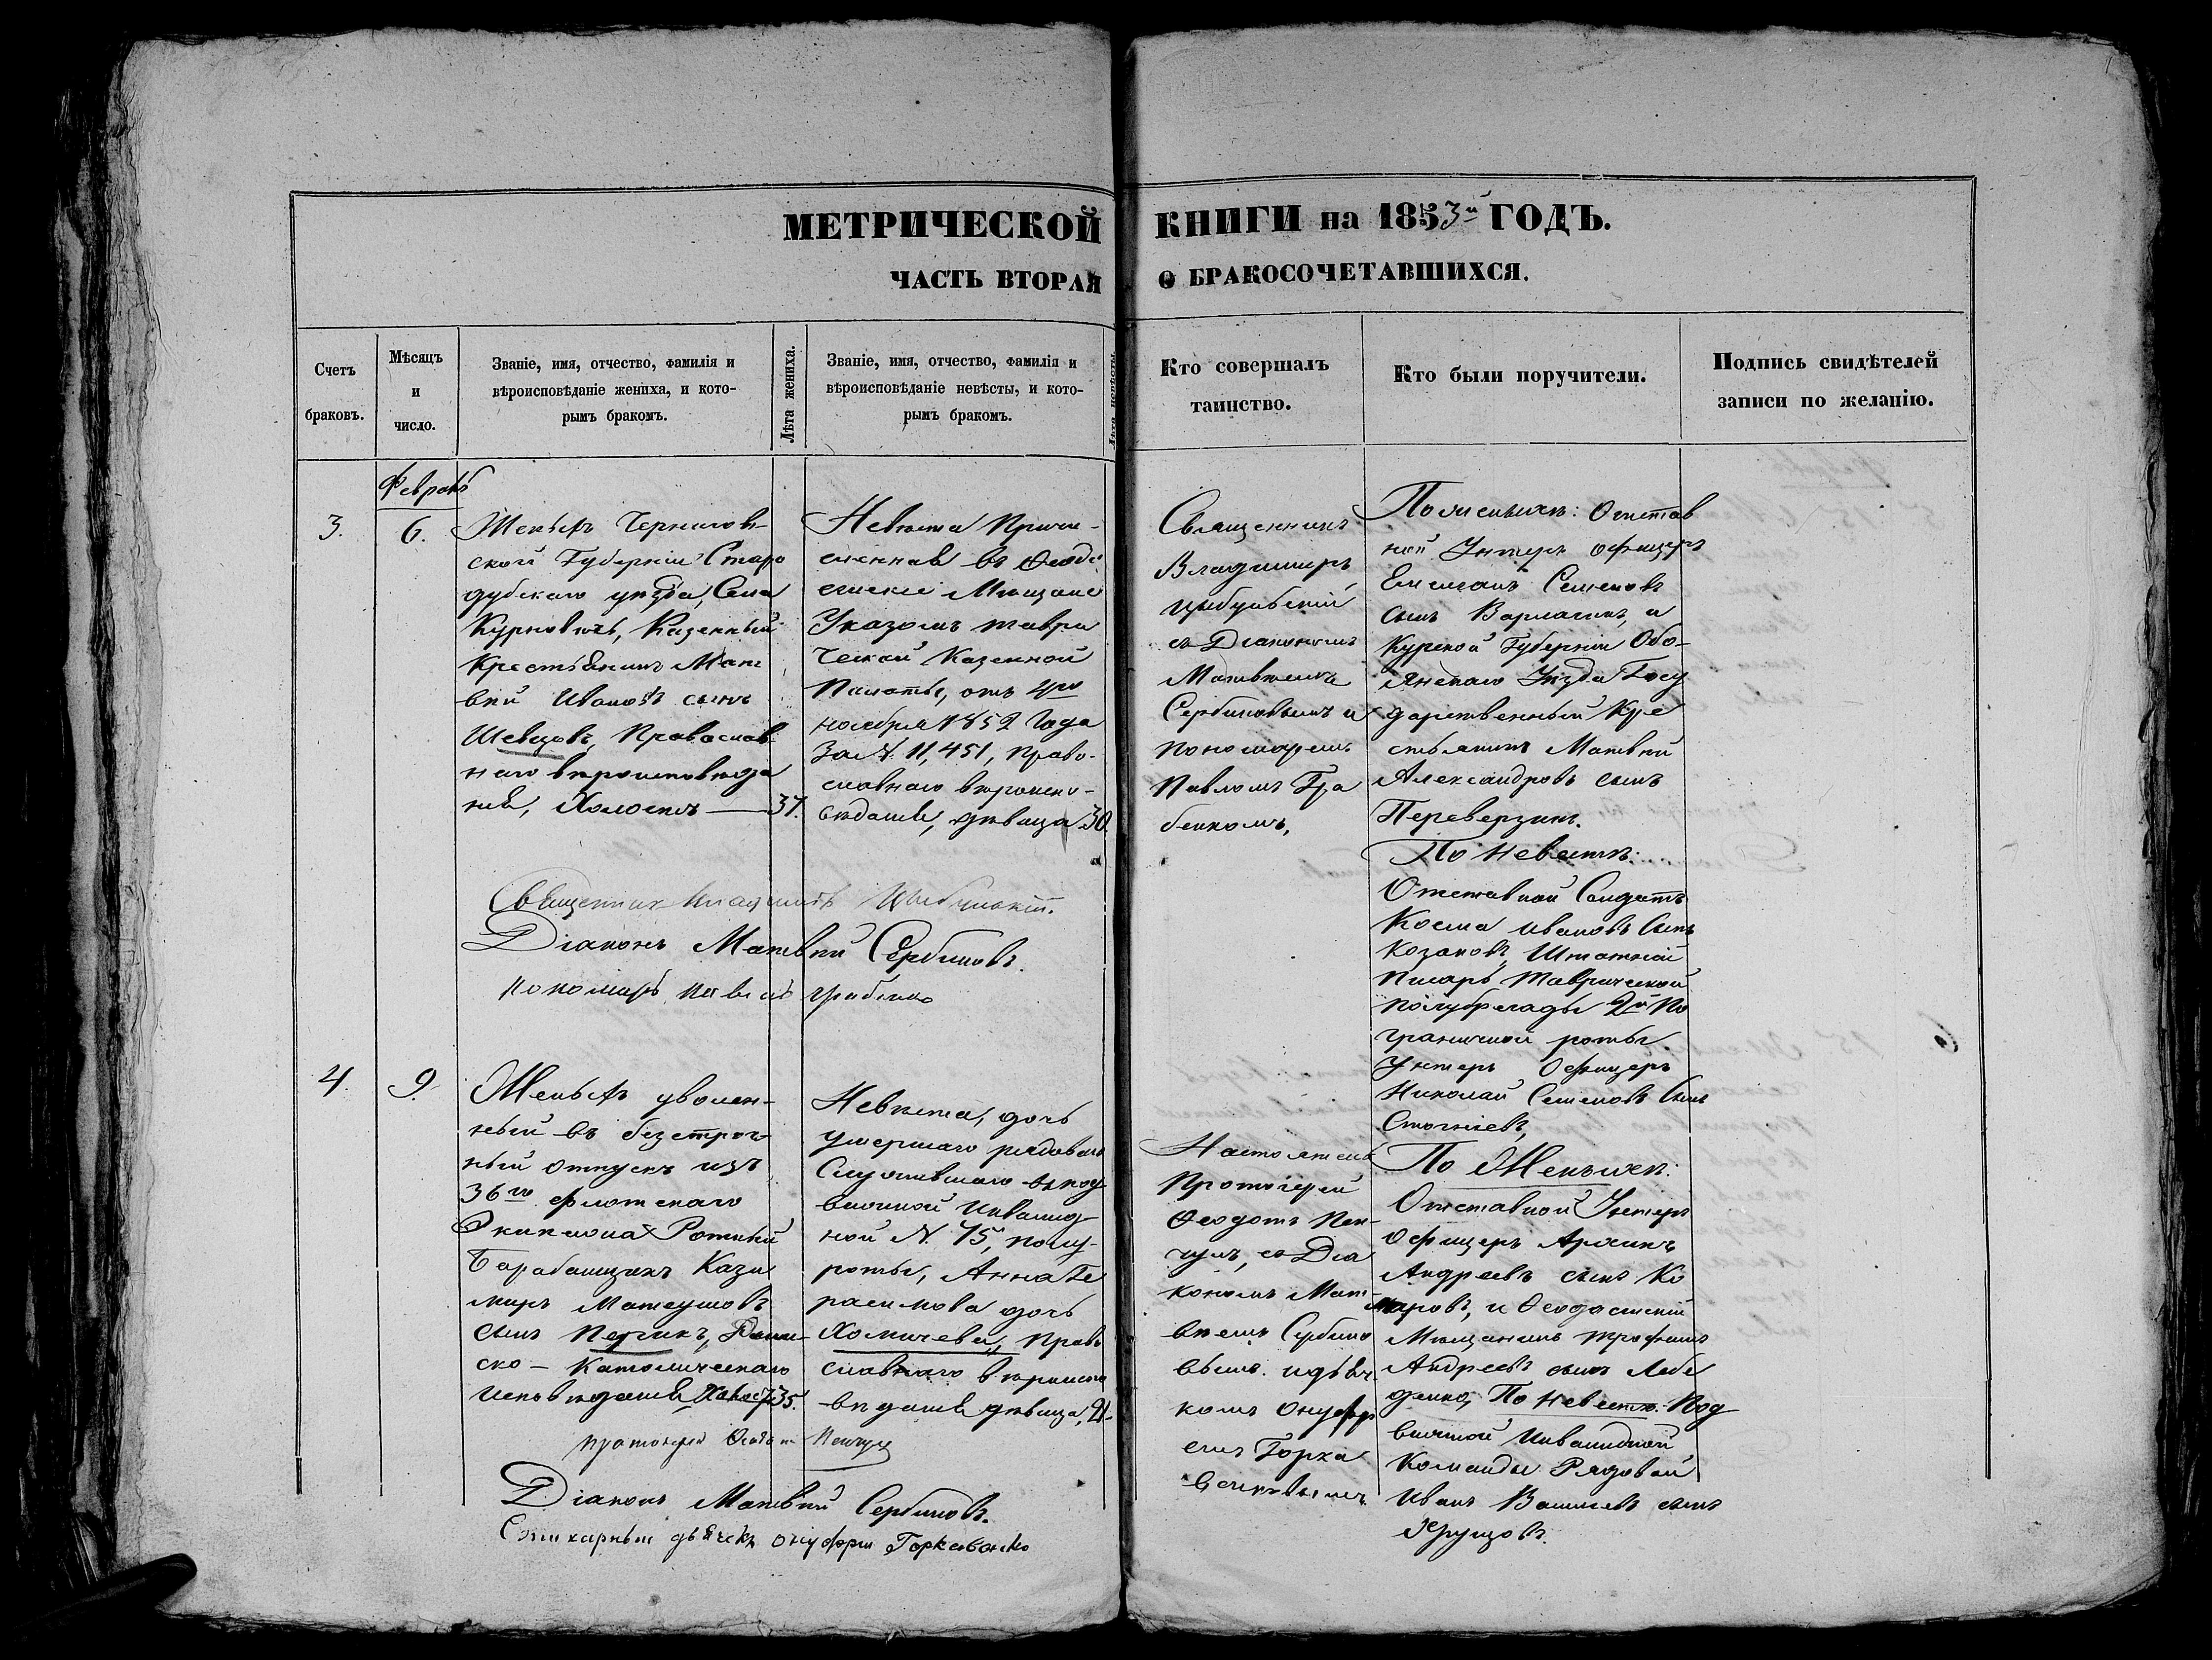 МЕТРИЧЕСКОЙ КНИГИ на 1853й ГОДЪ.
ЧАСТЬ ВТОРАЯ О БРАКОСОЧЕТАВШИХСЯ.
Счетъ
браковъ.
Мѣсяцъ
и
число.
Званіе, имя, отчество, фамилія и
вѣроисповѣданіе жениха, и кото-
рымъ бракомъ.
Лѣта жениха.
Званіе, имя, отчество, фамилія и
вѣроисповѣданіе невѣсты, и кото-
рымъ бракомъ.
Лѣта невѣсты.
Кто совершалъ
таинство.
Кто были поручители.
Подпись свидѣтелей
записи по желанію.
3.
6.
Женихъ Чернигов-
ской Губерніи Старо
дубскаго уѣзда, Села
Курковичь, Казенный
Крестьянинъ Мат
вѣй Ивановъ сынъ
Шевцовъ, Православ
наго вѣроисповѣда
нія, Холостъ — 37.
Невѣста Причи-
сленная въ Ѳеодо
сійскіе Мѣщане
Указомъ Таври
ческой Казенной
Палаты, отъ 4го
ноября 1852 Года
За N. 11,451, Право-
славнаго вѣроиспо-
вѣданія, дѣвица 30.
Священникъ
Владимиръ
Цыбульскій
съ Діакономъ
Матвѣемъ
Сербиновымъ и
пономаремъ
Павломъ Гра
бенкомъ,
По женихѣ: Отстав
ной Унтеръ офицеръ
Емельянъ Семеновъ
сынъ Варлагинъ, и
Курской Губерніи Обо-
янскаго Уѣзда Госу
дарственный Кре
стьянинъ Матвѣй
Александровъ сынъ
Переверзинъ.
По Невестѣ:
Отставной Солдатъ
Косма Ивановъ Сынъ
Козаковъ, Штатній
Писарь Таврической
Полубрегады 2й По
граничной роты
Унтеръ Офицеръ
Николай Семеновъ Сынъ
Священникъ Владимиръ Цыбульскій.
Діаконъ Матвѣй Сербиновъ.
Пономарь Павелъ Грабенко
4.
9.
Женихъ уволен-
ный въ безсроч-
ный отпускъ изъ
36го флотскаго
Экипажа Ротный
Барабанщикъ Кази
миръ Матеушовъ
сынъ Римс-
ско-Католическаго
Исповѣданія, Холостъ 35.
Невѣста, дочь
умершаго рядоваго
Служившаго въ под
вижной Инвалид
ной N. 75, полу-
роты, Анна Ге
расимова дочь
Хомичева, Право
славнаго вѣроиспо
вѣданія дѣвица, 21.
Настоятель
Протоіерей
Ѳеодотъ
съ Діа
кономъ Мат-
вѣемъ Сербино
вымъ и дьяч-
комъ Онуфрі
емъ Горка
венковымъ
По Женихѣ:
Отставной Унтеръ
Офицеръ
Андреевъ сынъ Ко
маровъ, и Ѳеодосійскій
Мѣщанинъ Трофимъ
Андреевъ сынъ Лебе
денко, По Невестѣ. Под
вижной Инвалидной
Команды Рядовой
Иванъ Васильевъ сынъ
Хрущовъ.
Протоіерей Ѳеодотъ
Діаконъ Матвѣй Сербиновъ.
Стихарный дьячекъ Онуфрій Горкавенко